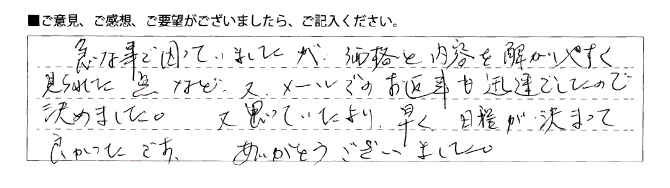 ■ご意見、ご感想、ご要望がございましたら、ご記入ください。
急な事で困っていましたが、価格と内容を解かりやすく
見られた点など、又、メールでのお返事も迅速でしたので
決めました。 又思っていたより、早く日程が決まって
良かったです。 ありがとうございました。